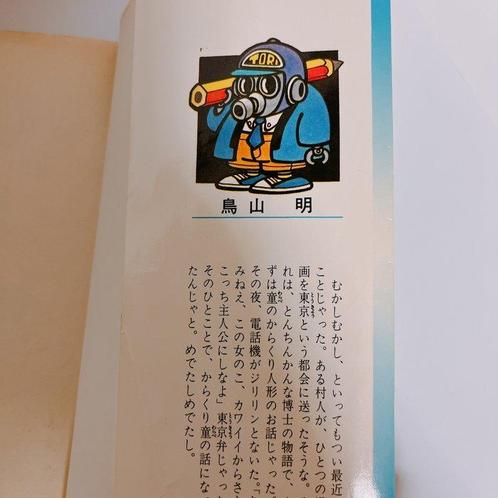 TORI
鳥山 明
むかしむかし、といってもつい最近
ことじゃった。ある村人が、ひとつの
画を東京という都会に送ったそうな。
れは、とんちんかんな博士の物語で、
ずは童のからくり人形のお話じゃった。
その夜、電話機がジリリンとないた。「
みねえ、この女のこ、カワイイからさ
こっち主人公にしなよ」東京弁じゃっ
そのひとことで、からくり童の話にな
たんじゃと。めでたしめでたし。